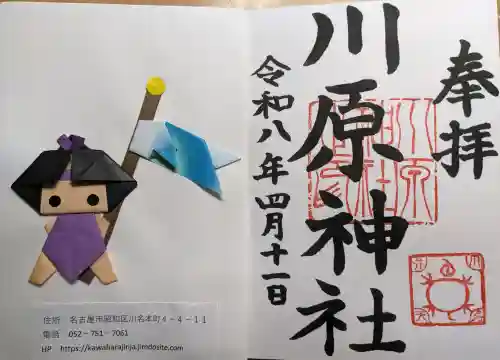 奉拝
川原神社
令和八年四月十一日
住所　名古屋市昭和区川名本町４－４－１１
電話　052－751－7061
HP　https://kawaharajinja.jimdosite.com